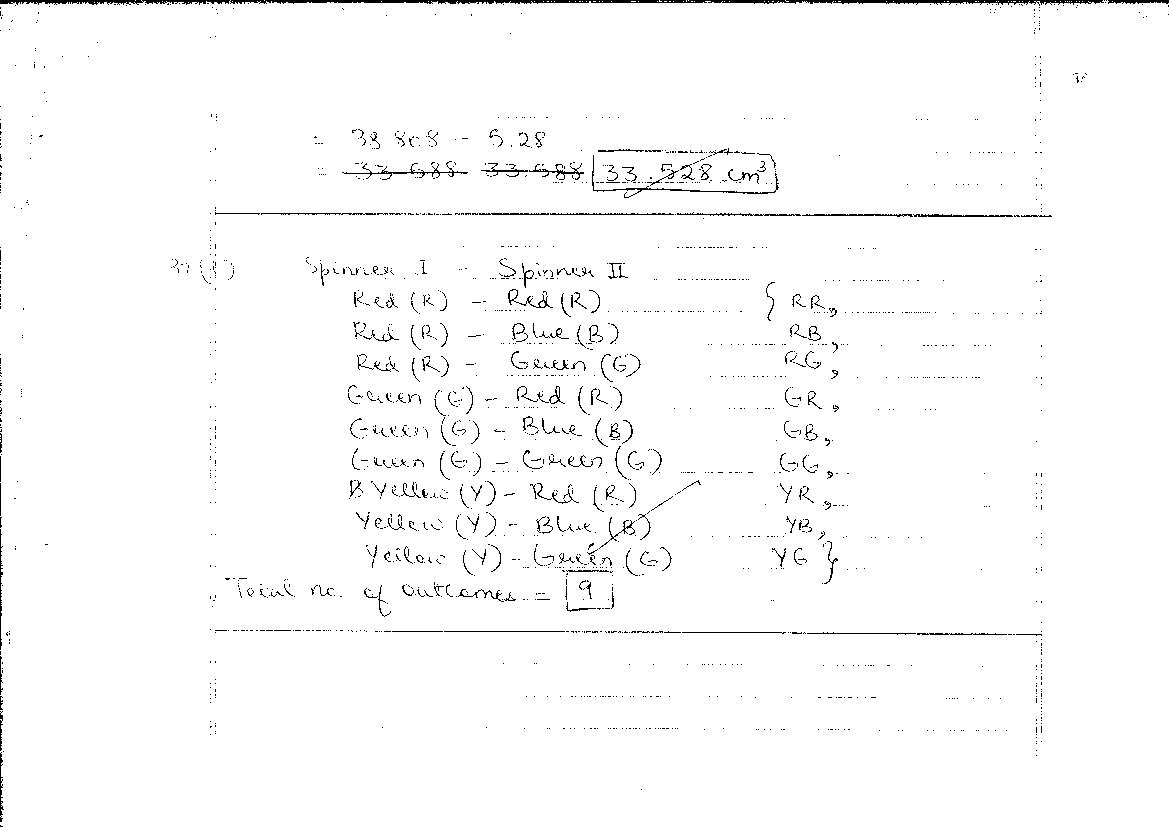 = 38.808 - 5.28
= 33.688 33.588 33.528 cm³
Spinner I - Spinner II
Red (R) - Red (R) { RR,
Red (R) - Blue (B) RB,
Red (R) - Green (G) RG,
Green (G) - Red (R) GR,
Green (G) - Blue (B) GB,
Green (G) - Green (G) GG,
B Yellow (Y) - Red (R) YR,
Yellow (Y) - Blue (B) YB,
Yellow (Y) - Green (G) YG }
Total no. of outcomes = 9